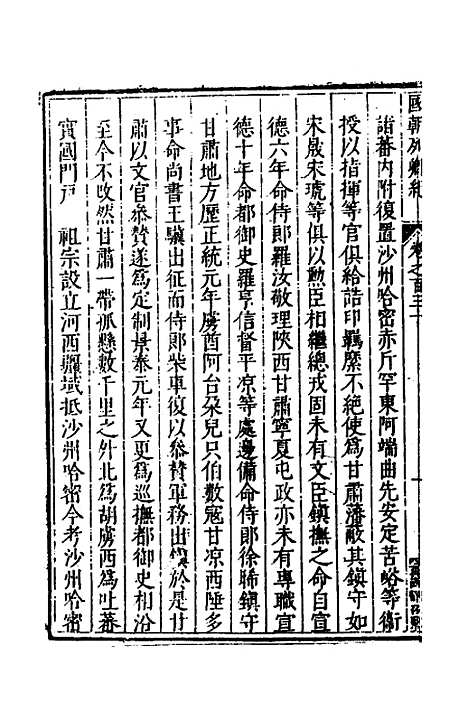 國朝列卿紀
卷之一百三十一
諸蕃内附復置沙州哈密赤斤罕東阿端曲先安定苦峪等衛
授以指揮等官俱給誥印羈縻不絶使爲甘肅藩蔽其鎮守如
宋晟宋琥等俱以勲臣相繼總戎固未有文臣鎮撫之命自宣
德六年命侍郎羅汝敬理陝西甘肅寧夏屯政亦未有專職宣
德十年命都御史羅亨信督平凉等處邊備命侍郎徐晞鎮守
甘肅地方歷正統元年虜酋阿台朵兒只伯數寇甘凉西陲多
事命尚書王驥出征而侍郎柴車復以叅賛軍務出鎮於是甘
肅以文官叅賛遂爲定制景泰元年又更爲巡撫都御史相沿
至今不改然甘肅一帶孤懸數千里之外北爲胡虜西爲吐蕃
實國門戶 祖宗設立河西疆域抵沙州哈密今考沙州哈密